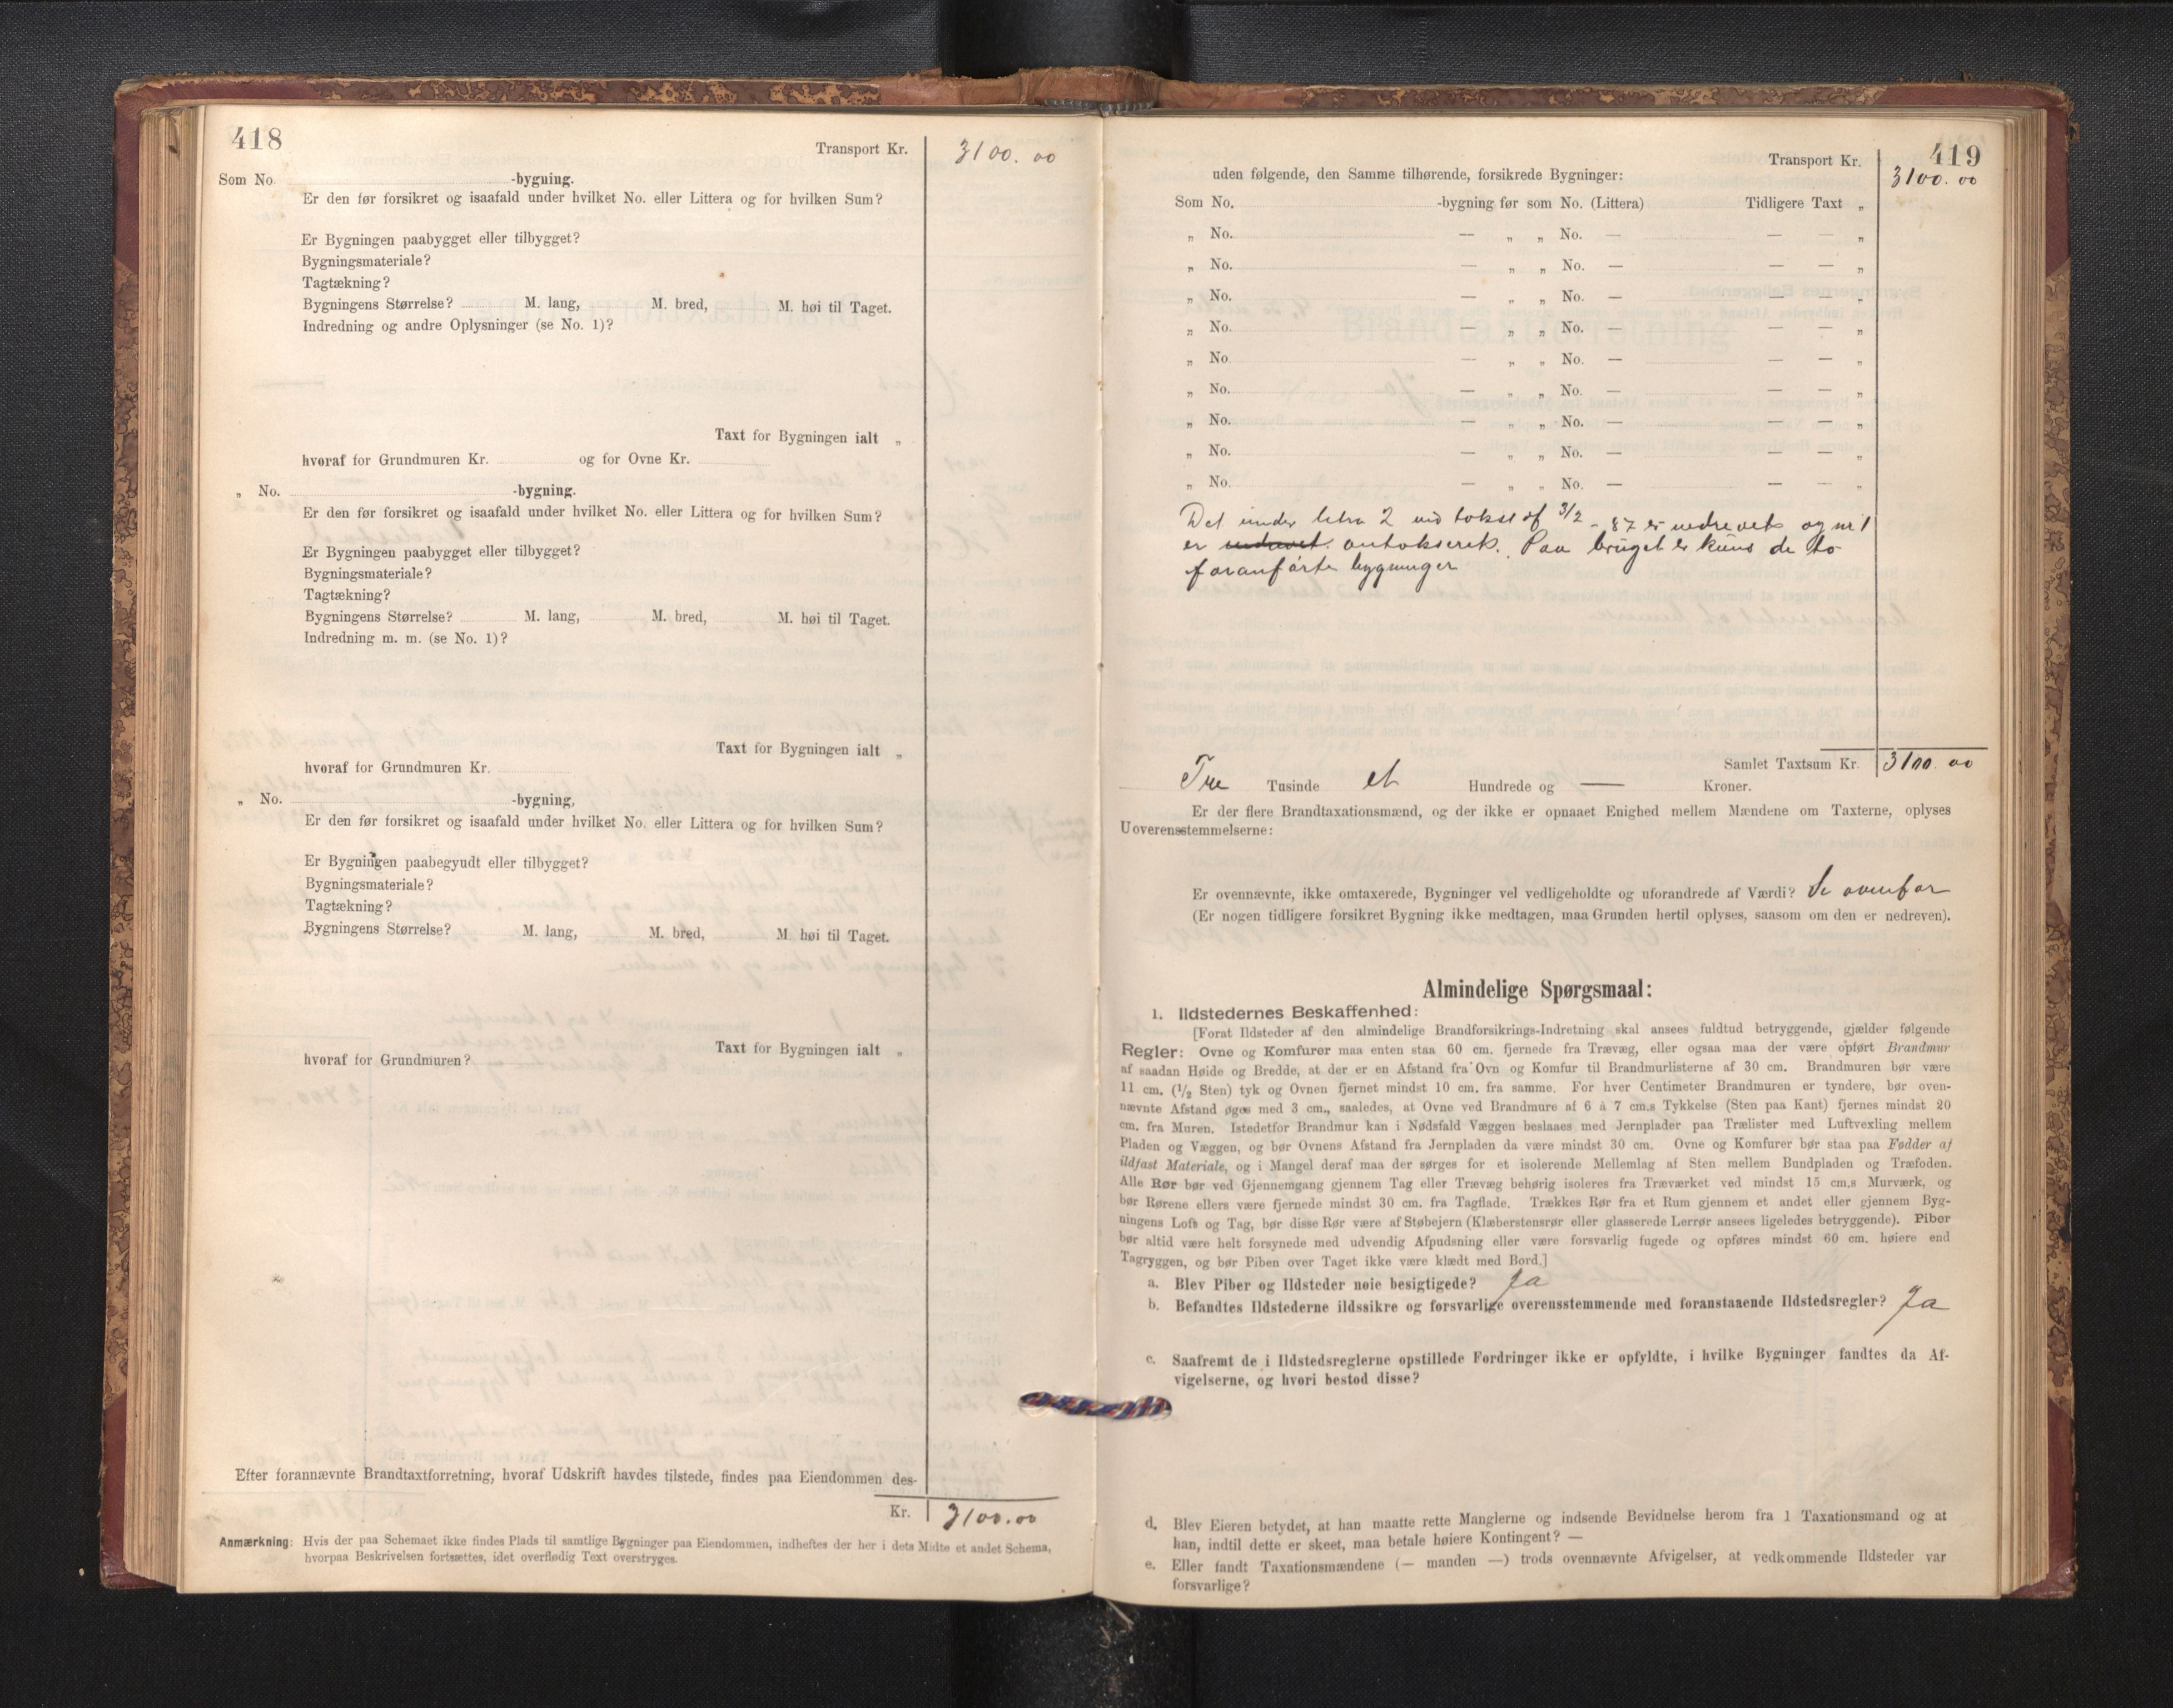 418
Transport Kr. 3100.00
Som No. -bygning.
Er den før forsikret og isaafald under hvilket No. eller Littera og for hvilken Sum?
Er Bygningen paabygget eller tilbygget?
Bygningsmateriale?
Tagtækning?
Bygningens Størrelse? M. lang, M. bred, M. høi til Taget.
Indredning og andre Oplysninger (se No. 1)?
Taxt for Bygningen ialt „
hvoraf for Grundmuren Kr. og for Ovne Kr.
„ No. -bygning.
Er den før forsikret og isaafald under hvilket No. eller Littera og for hvilken Sum?
Er Bygningen paabygget eller tilbygget?
Bygningsmateriale?
Tagtækning?
Bygningens Størrelse? M. lang, M. bred, M. høi til Taget.
Indredning m. m. (se No. 1)?
Taxt for Bygningen ialt „
hvoraf for Grundmuren Kr.
„ No. -bygning,
Er den før forsikret og isaafald under hvilket No. eller Littera og for hvilken Sum?
Er Bygningen paabegyudt eller tilbygget?
Bygningsmateriale?
Tagtækning?
Bygningens Størrelse? M. lang, M. bred, M. høi til Taget.
Taxt for Bygningen ialt „
hvoraf for Grundmuren?
Efter forannævnte Brandtaxtforretning, hvoraf Udskrift havdes tilstede, findes paa Eiendommen des-
Kr. 3100.00
Anmærkning: Hvis der paa Schemaet ikke findes Plads til samtlige Bygninger paa Eiendommen, indheftes der her i dets Midte et andet Schema,
hvorpaa Beskrivelsen fortsættes, idet overflødig Text overstryges.
419
Transport Kr. 3100.00
uden følgende, den Samme tilhørende, forsikrede Bygninger:
Som No. -bygning før som No. (Littera) Tidligere Taxt „
„ No. — „ „ No. — — — „
„ No. — „ „ No. — — — „
„ No. — „ „ No. — — — „
„ No. — „ „ No. — — — „
„ No. — „ „ No. — — — „
„ No. — „ „ No. — — — „
„ No. — „ „ No. — — — „
„ No. — „ „ No. — — — „
„ No. — „ „ No. — — — „
Det under litra 2 ved takst af 3/2 - 87 er nedrevet og nr 1
er omtakseret. Paa bruget er kuns de to
foranførte bygninger
Samlet Taxtsum Kr. 3100.00
Tre Tusinde et Hundrede og — Kroner.
Er der flere Brandtaxationsmænd, og der ikke er opnaaet Enighed mellem Mændene om Taxterne, oplyses
Uoverensstemmelserne:
Er ovennævnte, ikke omtaxerede, Bygninger vel vedligeholdte og uforandrede af Værdi? Se ovenfor
(Er nogen tidligere forsikret Bygning ikke medtagen, maa Grunden hertil oplyses, saasom om den er nedreven).
Almindelige Spørgsmaal:
1. Ildstedernes Beskaffenhed:
[Forat Ildsteder af den almindelige Brandforsikrings-Indretning skal ansees fuldtud betryggende, gjælder følgende
Regler: Ovne og Komfurer maa enten staa 60 cm. fjernede fra Trævæg, eller ogsaa maa der være opført Brandmur
af saadan Høide og Bredde, at der er en Afstand fra Ovn og Komfur til Brandmurlisterne af 30 cm. Brandmuren bør være
11 cm. (1/2 Sten) tyk og Ovnen fjernet mindst 10 cm. fra samme. For hver Centimeter Brandmuren er tyndere, bør oven-
nævnte Afstand øges med 3 cm., saaledes, at Ovne ved Brandmure af 6 à 7 cm.s Tykkelse (Sten paa Kant) fjernes mindst 20
cm. fra Muren. Istedetfor Brandmur kan i Nødsfald Væggen beslaaes med Jernplader paa Trælister med Luftvexling mellem
Pladen og Væggen, og bør Ovnens Afstand fra Jernpladen da være mindst 30 cm. Ovne og Komfurer bør staa paa Fødder af
ildfast Materiale, og i Mangel deraf maa der sørges for et isolerende Mellemlag af Sten mellem Bundpladen og Træfoden.
Alle Rør bør ved Gjennemgang gjennem Tag eller Trævæg behørig isoleres fra Træværket ved mindst 15 cm.s Murværk, og
bør Rørene ellers være fjernede mindst 30 cm. fra Tagflade. Trækkes Rør fra et Rum gjennem et andet eller gjennem Byg-
ningens Loft og Tag, bør disse Rør være af Støbejern (Klæberstensrør eller glasserede Lerrør ansees ligeledes betryggende). Piber
bør altid være helt forsynede med udvendig Afpudsning eller være forsvarlig fugede og opføres mindst 60 cm. høiere end
Tagryggen, og bør Piben over Taget ikke være klædt med Bord.]
a. Blev Piber og Ildsteder nøie besigtigede? Ja
b. Befandtes Ildstederne ildssikre og forsvarlige overensstemmende med foranstaaende Ildstedsregler? Ja
c. Saafremt de i Ildstedsreglerne opstillede Fordringer ikke er opfyldte, i hvilke Bygninger fandtes da Af-
vigelserne, og hvori bestod disse?
d. Blev Eieren betydet, at han maatte rette Manglerne og indsende Bevidnelse herom fra 1 Taxationsmand og at
han, indtil dette er skeet, maa betale høiere Kontingent? —
e. Eller fandt Taxationsmændene (— manden —) trods ovennævnte Afvigelser, at vedkommende Ildsteder var
forsvarlige?